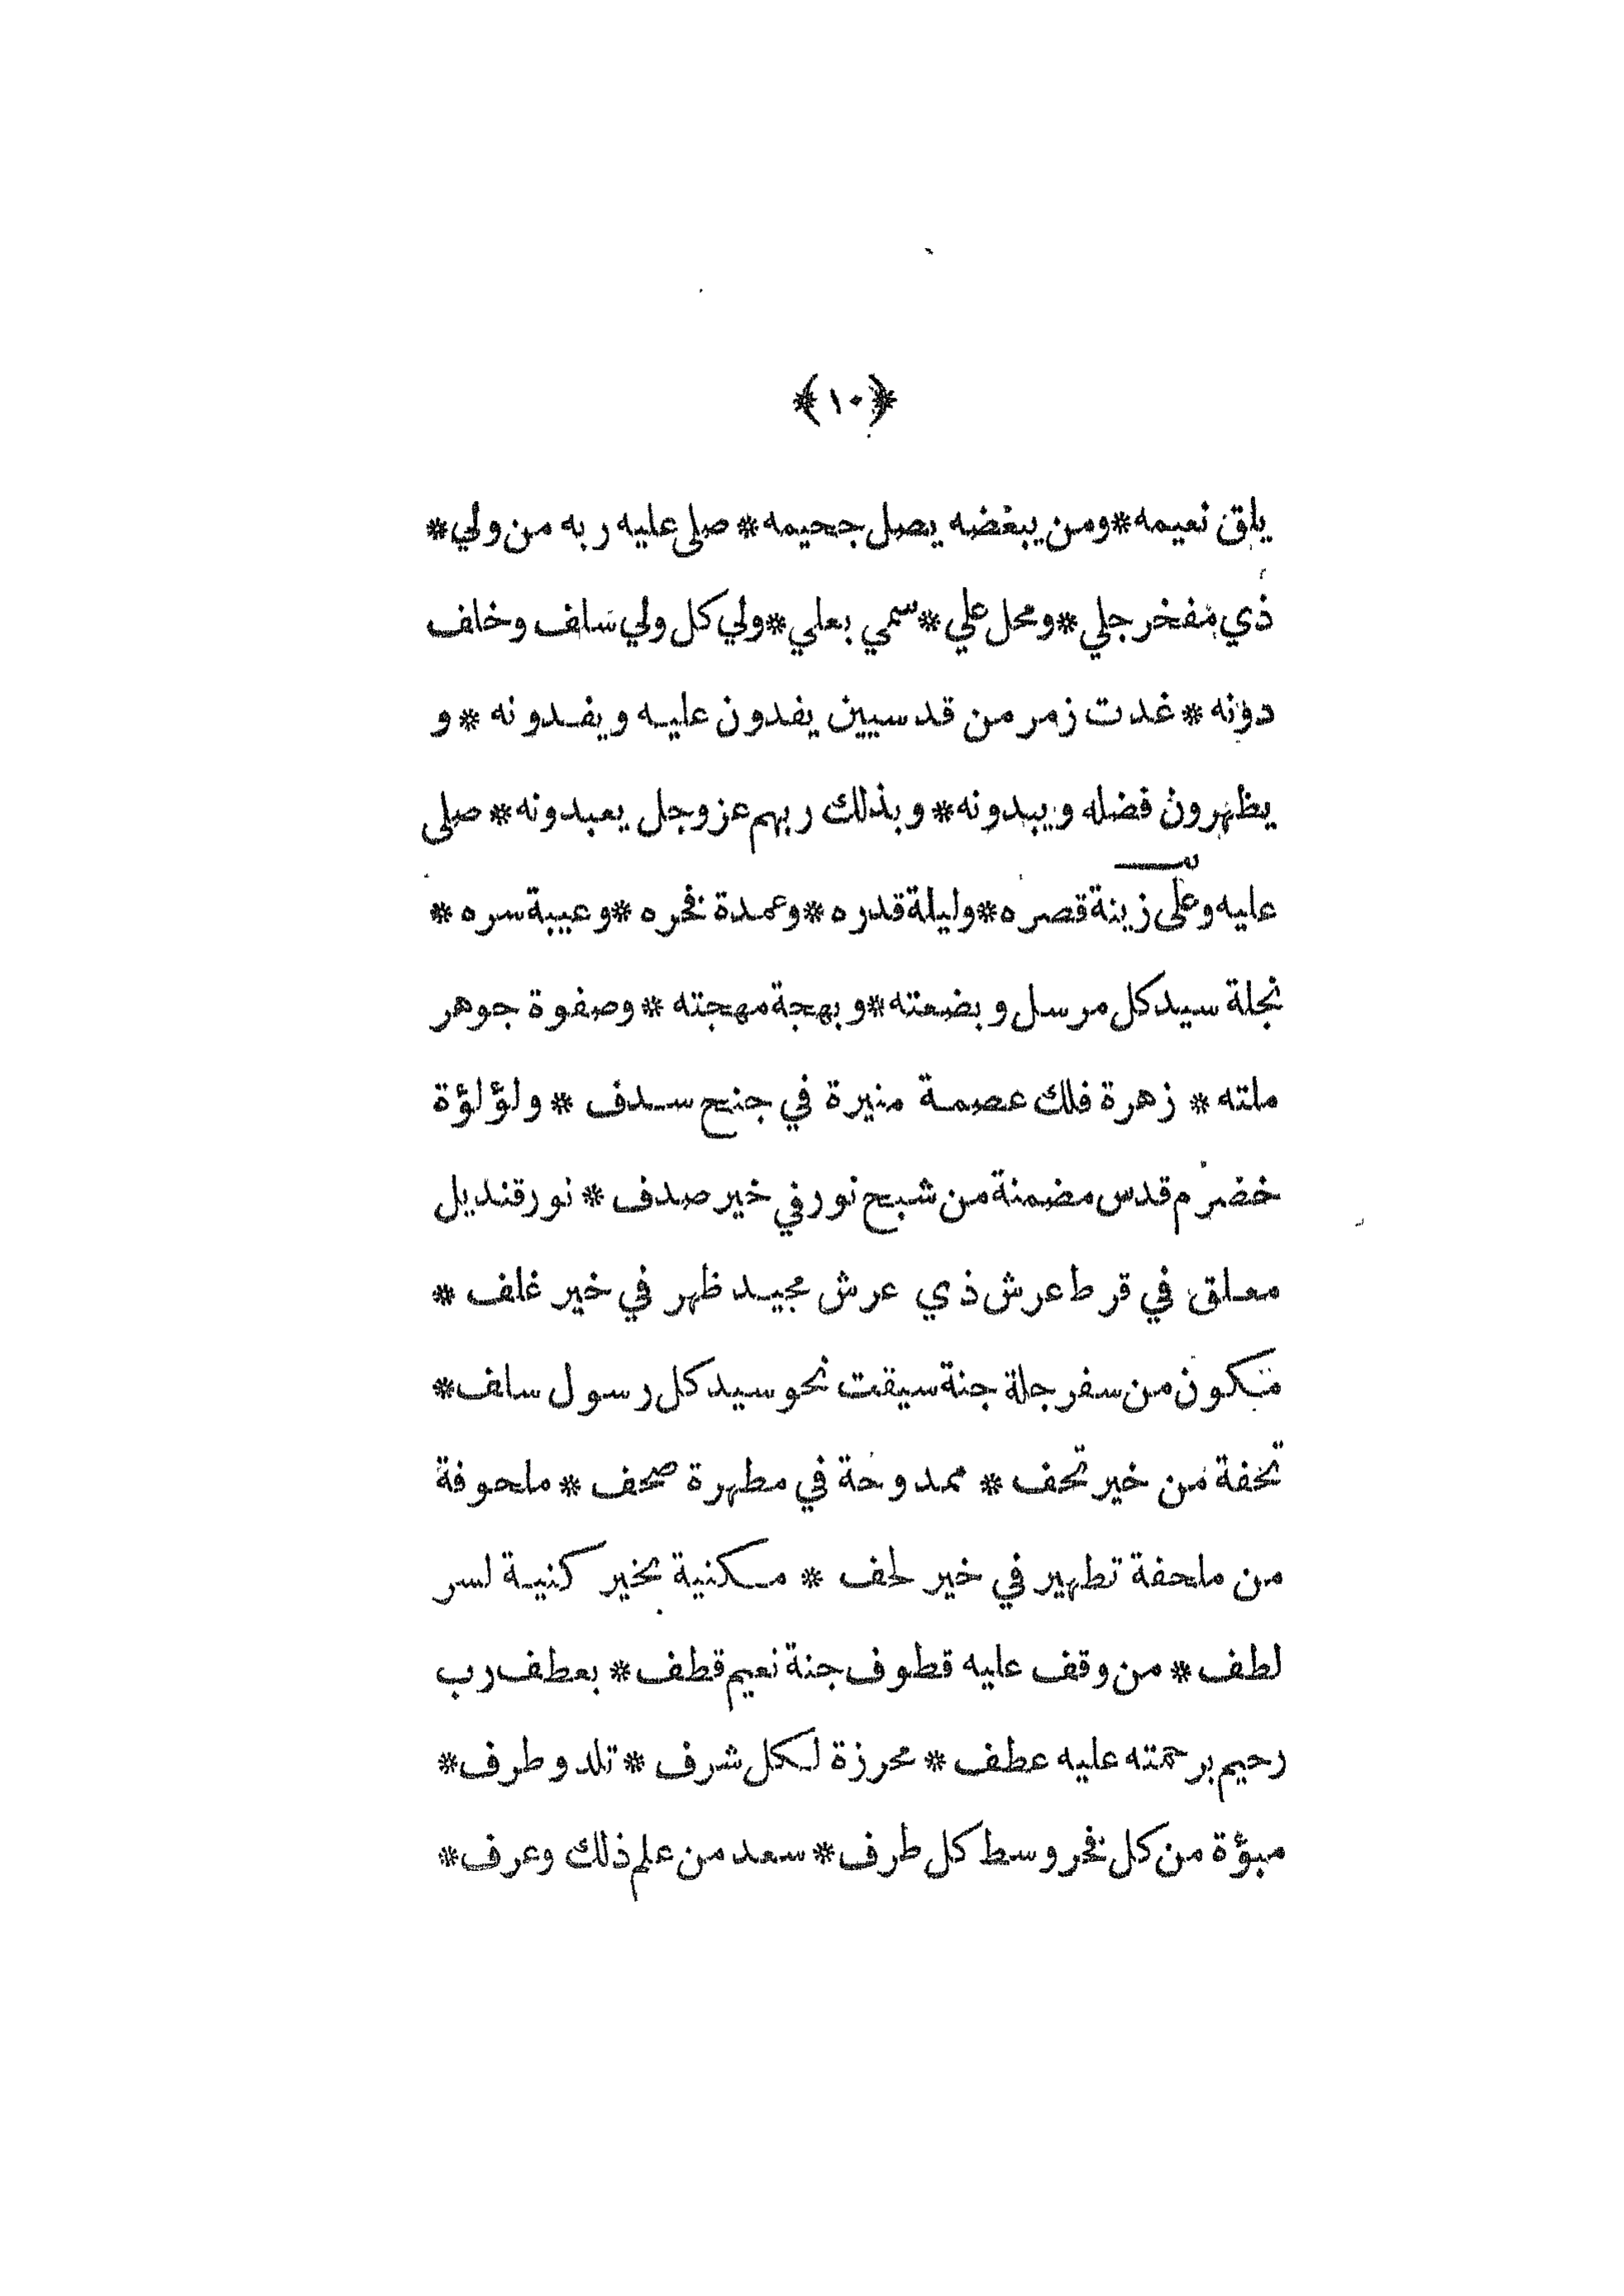 ﴿١٠﴾
يلق نعيمه * ومن يبغضه يصل جحيمه * صلى عليه ربه من ولي *
ذي مفخر جلي * ومحل علي * سمي بعلي * ولي كل ولي سالف وخالف
دونه * غدت زمر من قدسيين يفدون عليه ويفدونه * و
يظهرون فضله ويبدونه * وبذلك ربهم عز وجل يعبدونه * صلى
عليه وعلى زينة قصره * وليلة قدره * وعمدة فخره * وعيبة سره *
نجلة سيد كل مرسل وبضعته * وبهجة مهجته * وصفوة جوهر
ملته * زهرة فلك عصمة منيرة في جنح سدف * ولؤلؤة
خضرم قدس مضمنة من شبح نور في خير صدف * نور قنديل
معلق في قرط عرش ذي عرش مجيد ظهر في خير غلف *
متكون من سفرجلة جنة سيقت نحو سيد كل رسول سلف *
تحفة من خير تحف * ممدوحة في مطهرة صحف * ملحوفة
من ملحفة تطهير في خير لحف * مكنية بخير كنية لسر
لطف * من وقف عليه قطوف جنة نعيم قطف * بعطف رب
رحيم برحمته عليه عطف * محرزة لكل شرف * تلد وطرف *
مبؤة من كل فخر وسط كل طرف * سعد من علم ذلك وعرف *